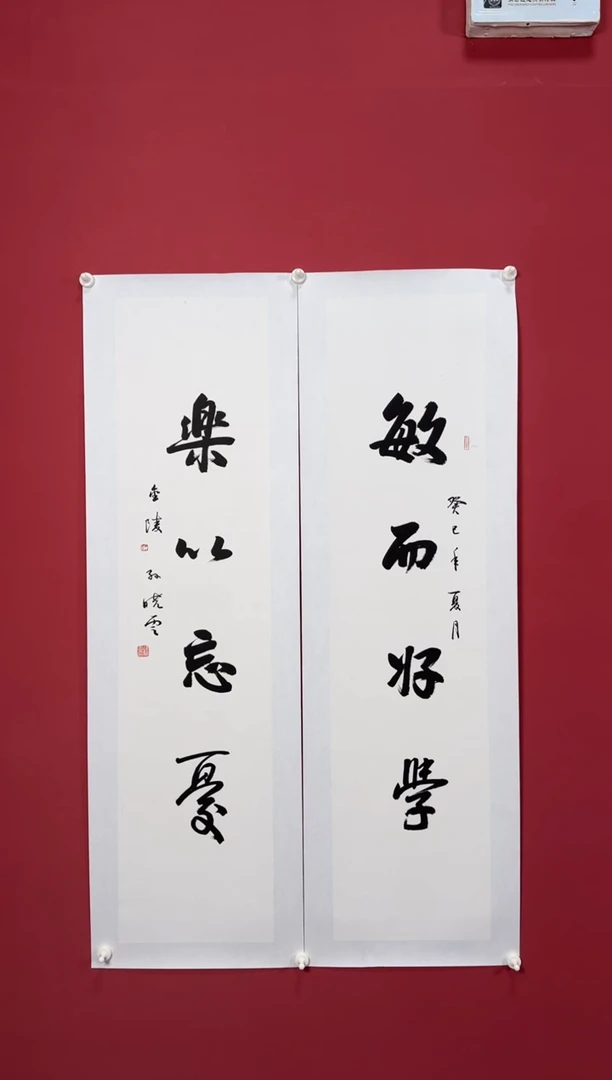 敏而好學
癸巳年夏月
樂以忘憂
金陵孫曉雲